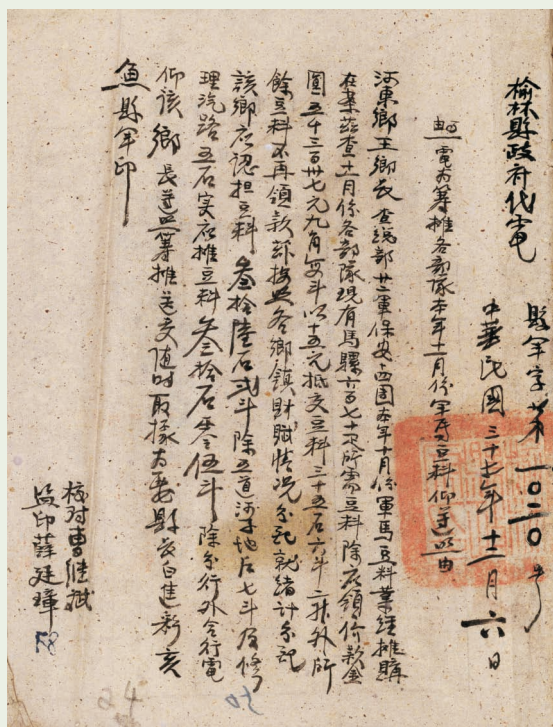 榆林縣政府代電
縣軍字第一〇二〇号
中華民國三十七年十二月六日
電為籌推各部隊本年十一月份軍馬豆料仰遵照由
河東鄉王鄉長查總部廿二軍保安四團本年十月份軍馬豆料業經推購
在案茲查十一月份各部隊現有馬騾六百七十次所需豆料除應領價款金
圓五千三百卅七元九角每斗以十五元抵交豆料三十五石六斗二升外所
餘豆料不再領款茲按照各鄉鎮財賦情况分配就緒計分配
該鄉應認担豆料叁拾陸石弍斗除五道河子地石七斗及修
理汽路五石实應推豆料叁拾石零伍斗除分行外合行電
仰該鄉長遵照籌推送交随時取據為要縣長白進 亥
魚縣軍印
校对曹繼
監印薛廷璋
58
50
24